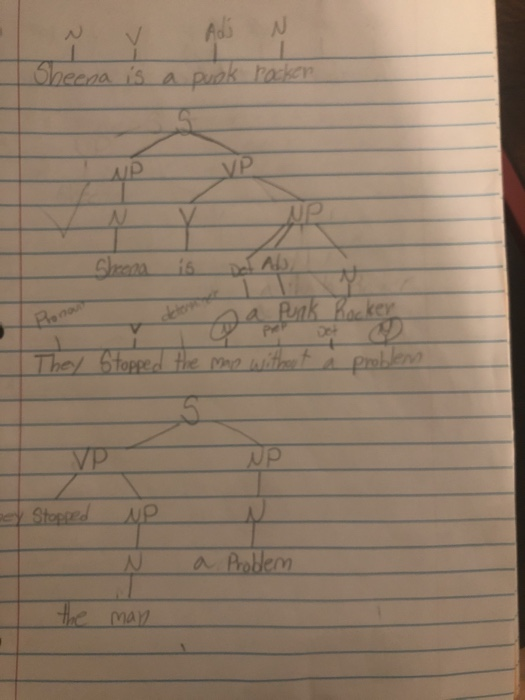 N V Adj N
Sheena is a punk rocker
S
NP VP
N V NP
Sheena is Det Adj N
a Punk Rocker
Pronoun V determiner N prep Det N
They Stopped the man without a problem
S
VP NP
ey Stopped NP N
N a Problem
the man